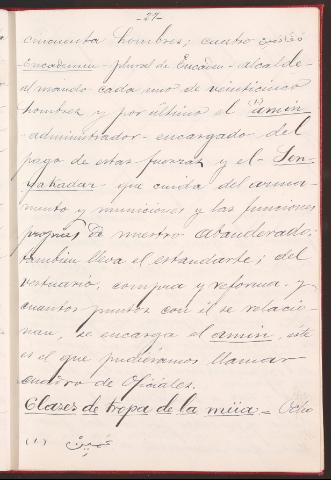 -27-
cincuenta hombres; cuatro مقادمين
Encademin - plural de Encadem - alcalde -
al mando cada uno de veinticinco
hombres y por último el (1) amin
- administrador - encargado del
pago de estas fuerzas y el - Sen-
yakadar - que cuida del arma-
mento y municiones y las funciones
propias de nuestro abanderado;
también lleva el estandarte; del
vestuario, compra y reforma y
cuantos puntos con él se relacio-
nan, se encarga el amin, éste
es el que pudiéramos llamar
cuadro de Oficiales.
Clases de tropa de la mía = Ocho
(1)